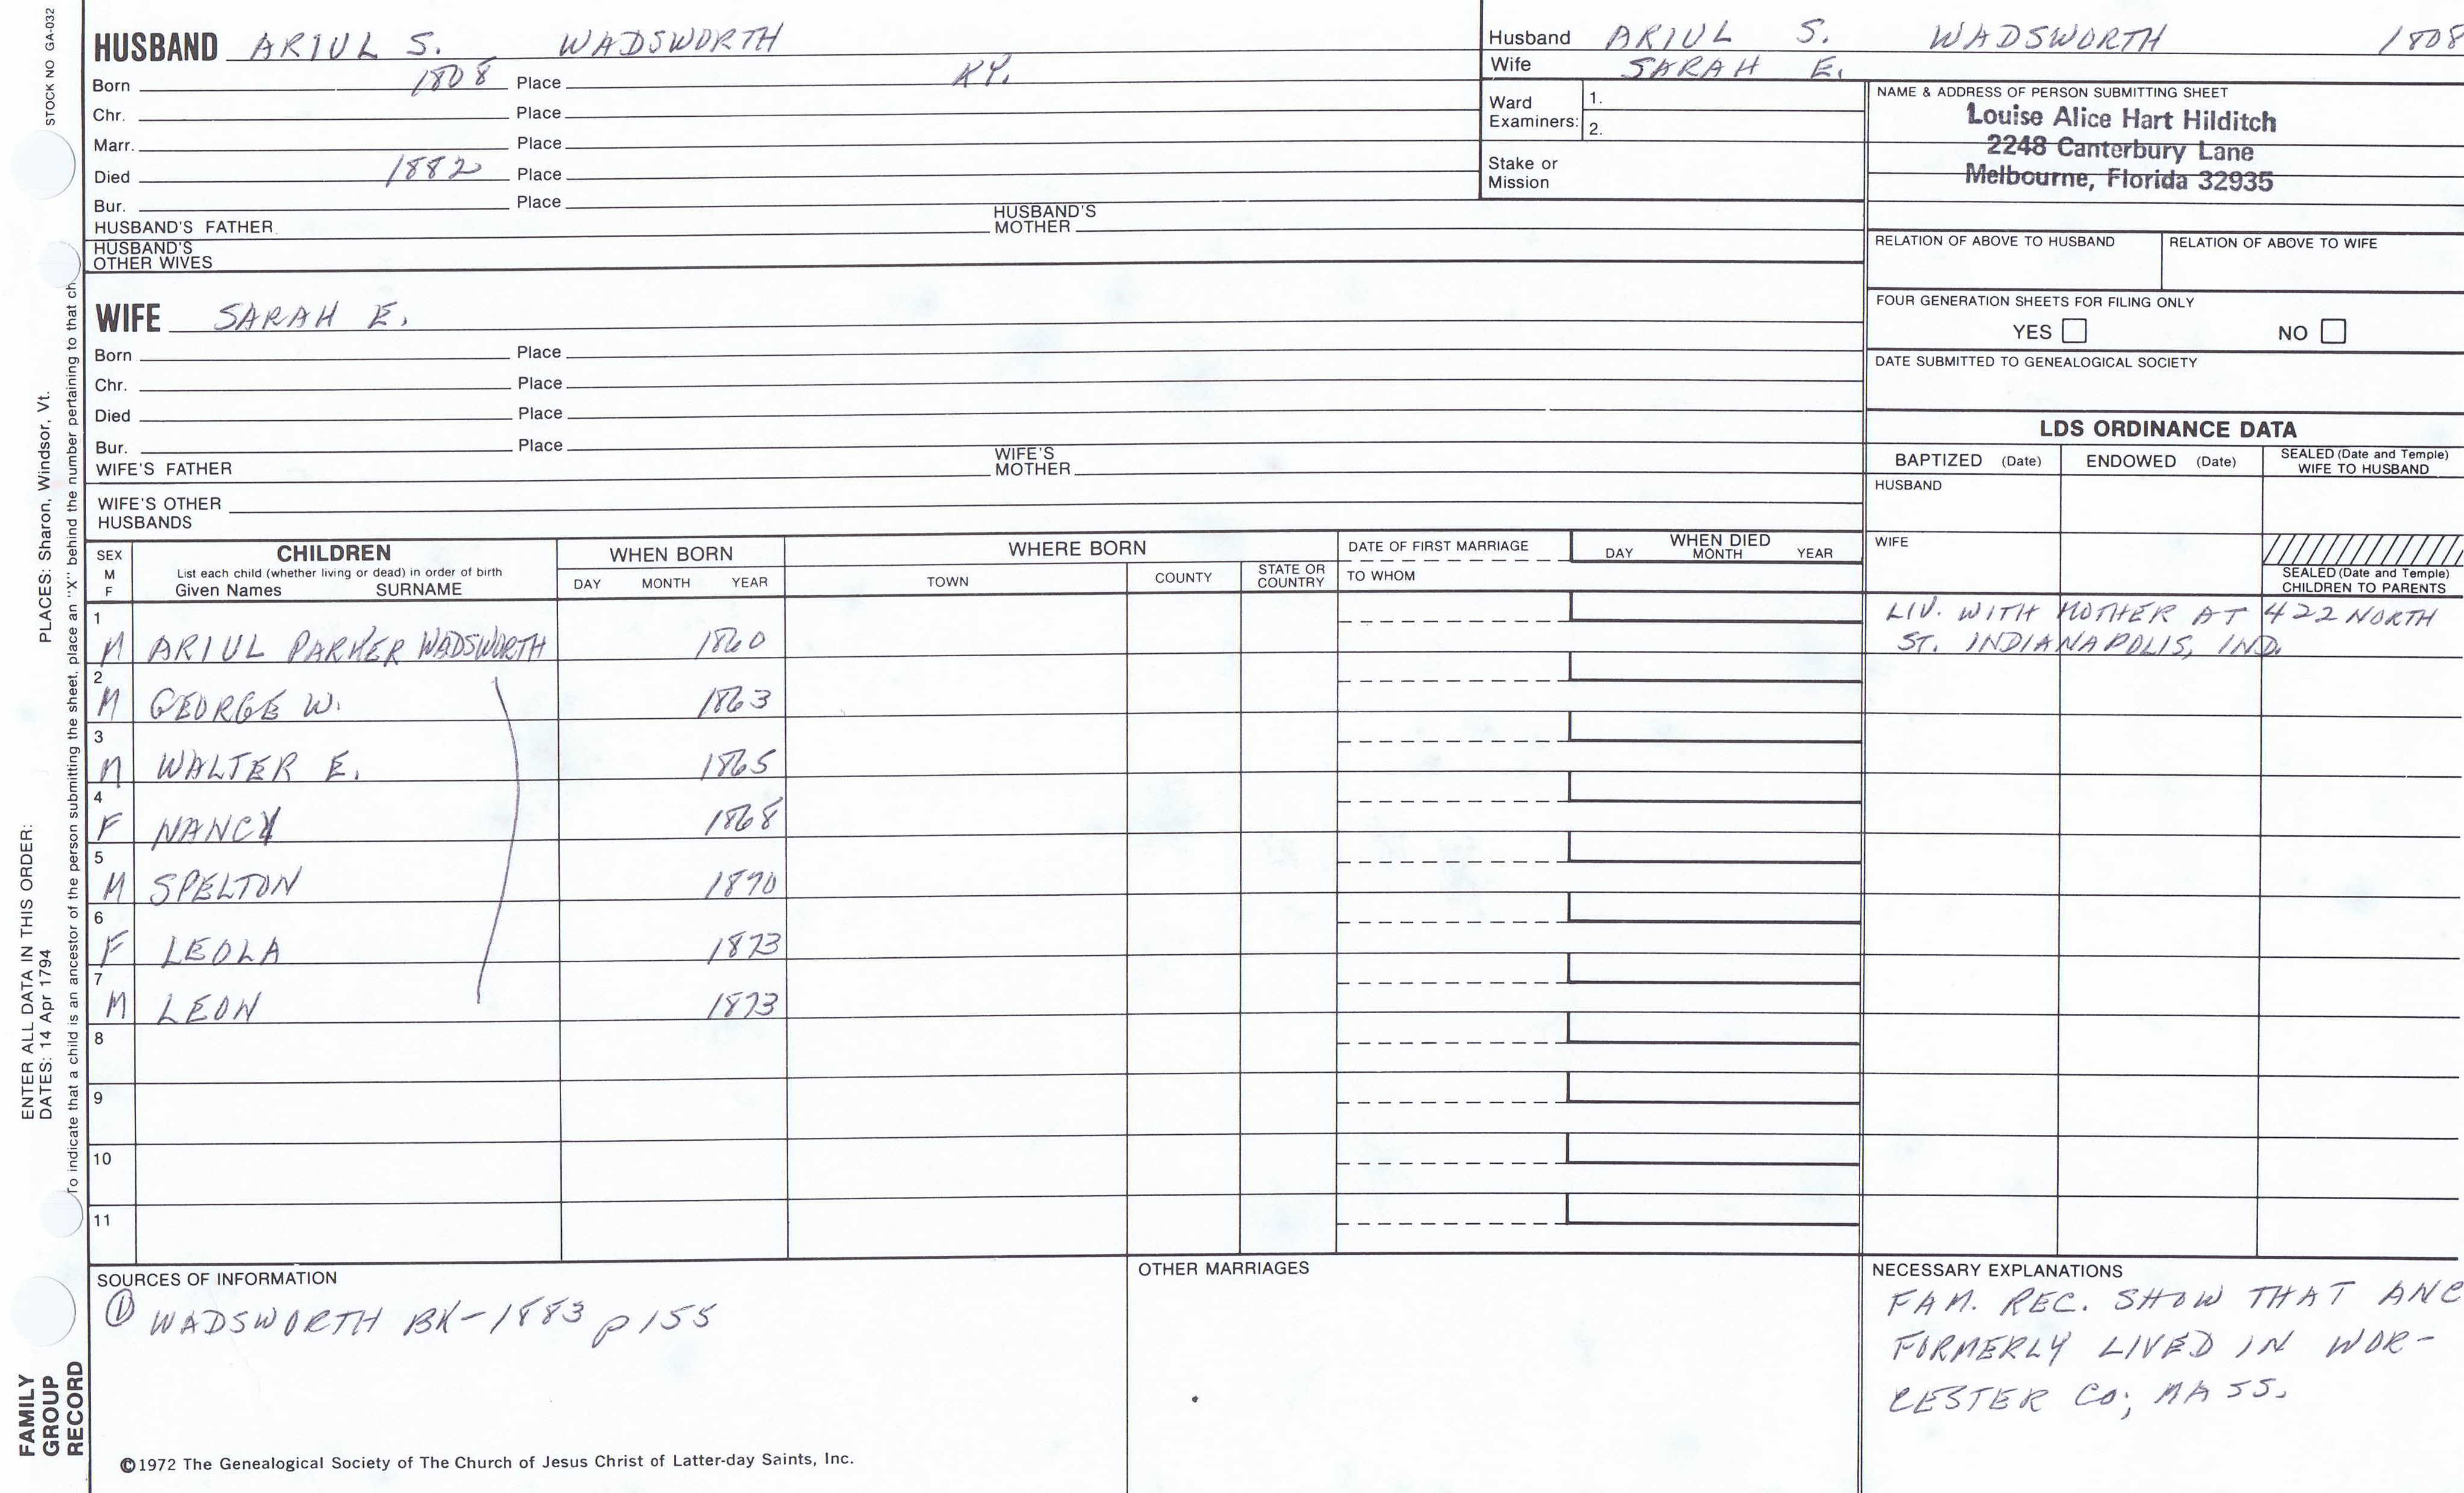 STOCK NO GA-032
HUSBAND ARIUL S. WADSWORTH
Born 1808 Place KY.
Chr. Place
Marr. Place
Died 1882 Place
Bur. Place
HUSBAND'S FATHER HUSBAND'S MOTHER
HUSBAND'S OTHER WIVES
Husband ARIUL S. WADSWORTH 1808
Wife SARAH E.
Ward Examiners: 1.
2.
Stake or Mission
NAME & ADDRESS OF PERSON SUBMITTING SHEET
Louise Alice Hart Hilditch
2248 Canterbury Lane
Melbourne, Florida 32935
RELATION OF ABOVE TO HUSBAND RELATION OF ABOVE TO WIFE
FOUR GENERATION SHEETS FOR FILING ONLY
YES NO
DATE SUBMITTED TO GENEALOGICAL SOCIETY
WIFE SARAH E.
Born Place
Chr. Place
Died Place
Bur. Place
WIFE'S FATHER WIFE'S MOTHER
WIFE'S OTHER HUSBANDS
LDS ORDINANCE DATA
BAPTIZED (Date) ENDOWED (Date) SEALED (Date and Temple) WIFE TO HUSBAND
HUSBAND
WIFE
SEALED (Date and Temple) CHILDREN TO PARENTS
SEX M F
CHILDREN
List each child (whether living or dead) in order of birth
Given Names SURNAME
WHEN BORN
DAY MONTH YEAR
WHERE BORN
TOWN COUNTY STATE OR COUNTRY
DATE OF FIRST MARRIAGE
TO WHOM
WHEN DIED
DAY MONTH YEAR
1 M ARIUL PARKER WADSWORTH 1860
LIV. WITH MOTHER AT 422 NORTH
ST. INDIANAPOLIS, IND.
2 M GEORGE W. 1863
3 M WALTER E. 1865
4 F NANCY 1868
5 M SPELTON 1870
6 F LEOLA 1873
7 M LEON 1873
8
9
10
11
SOURCES OF INFORMATION
① WADSWORTH BK-1883 p 155
OTHER MARRIAGES
NECESSARY EXPLANATIONS
FAM. REC. SHOW THAT ANC
FORMERLY LIVED IN WOR-
CESTER CO; MASS.
©1972 The Genealogical Society of The Church of Jesus Christ of Latter-day Saints, Inc.
FAMILY
GROUP
RECORD
ENTER ALL DATA IN THIS ORDER:
DATES: 14 Apr 1794
PLACES: Sharon, Windsor, Vt.
To indicate that a child is an ancestor of the person submitting the sheet, place an "X" behind the number pertaining to that ch